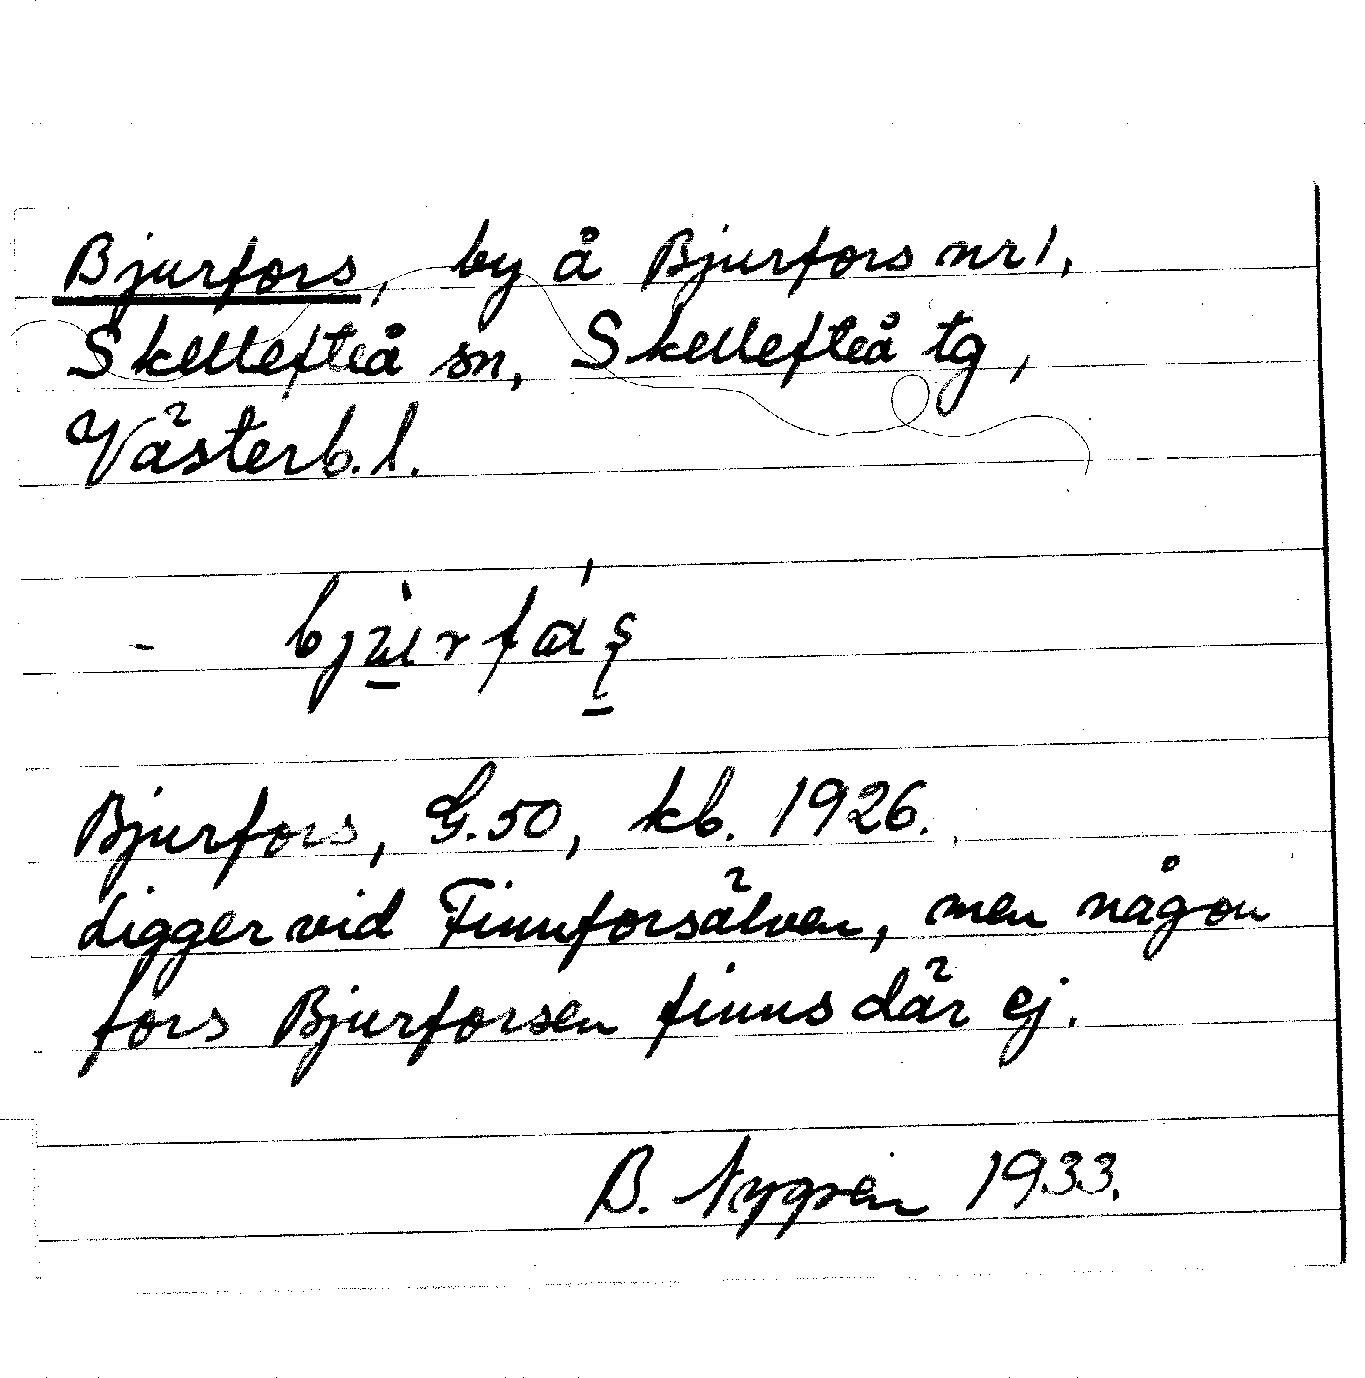 Bjurfors, by å Bjurfors nr 1,
Skellefteå sn, Skellefteå tg,
Västerb. l.
Bjurfors, G. 50, kb. 1926.
Ligger vid Finnforsälven, men någon
fors Bjurforsen finns där ej.
B. Nygren 1933.